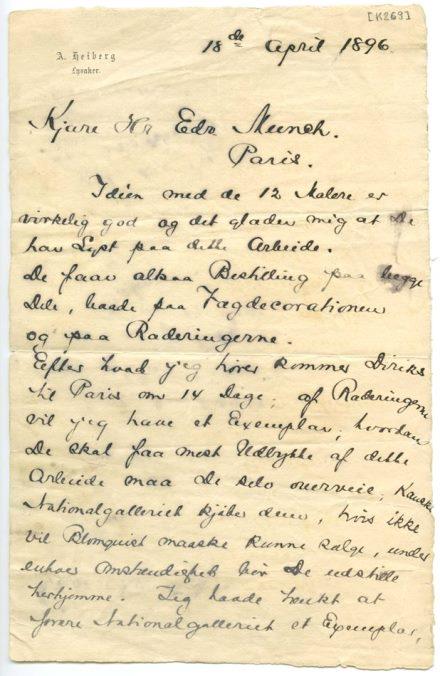 [K269]
A. Heiberg
Lysaker.
18de April 1896
Kjære Hr Edv. Munch.
Paris.
Idéen med de 12 Malere er
virkelig god og det glæder mig at De
har Lyst paa dette Arbeide.
De faar altsaa Bestilling paa begge
Dele, baade paa Vægdecorationen
og paa Raderingerne.
Efter hvad jeg hører kommer Diriks
til Paris om 14 Dage; af Raderingerne
vil jeg have et Exemplar, hvordan
De skal faa mest Udbytte af dette
Arbeide maa De selv overveie, Kanske
Nationalgalleriet kjøber dem, hvis ikke
vil Blomquist maaske kunne sælge, under
enhver Omstændighed bør De udstille
herhjemme. Jeg havde tænkt at
forære Nationalgalleriet et Exemplar,